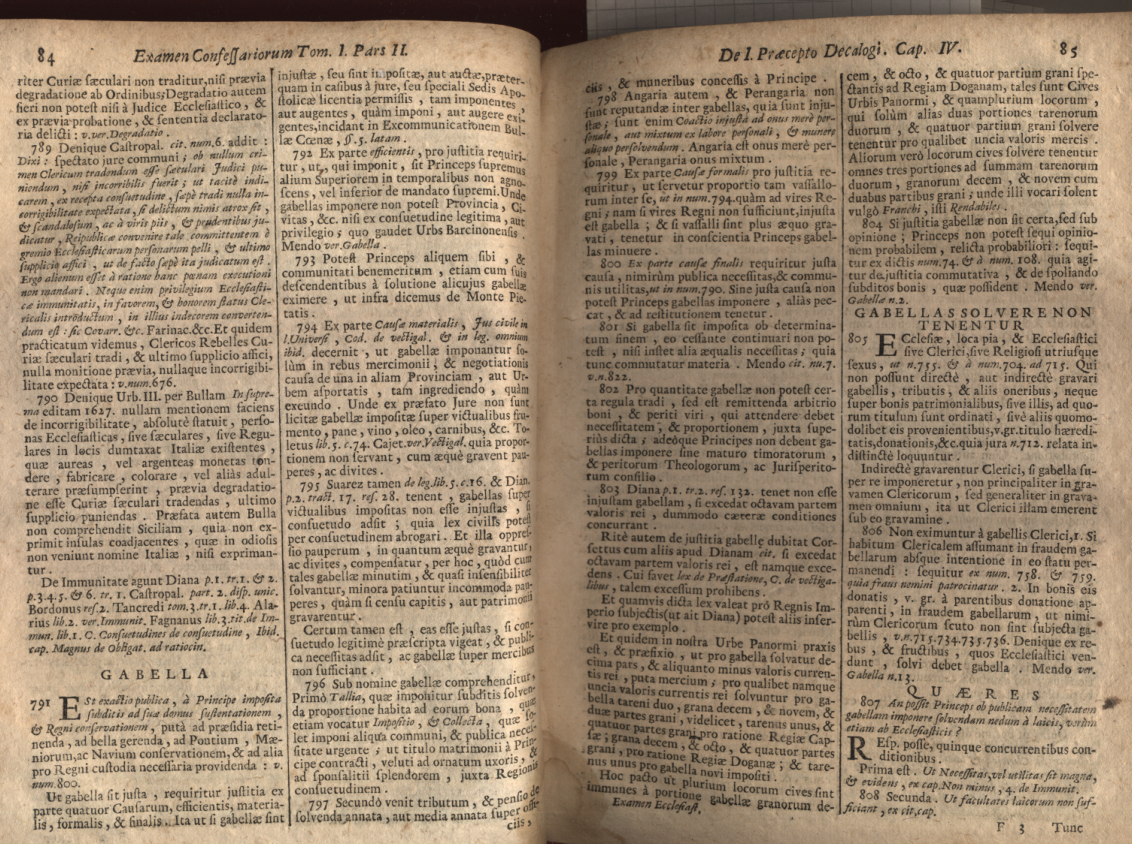 84
Examen Confeſſariorum Tom. I. Pars II.
riter Curiæ ſæculari non traditur, niſi prævia
degradatione ab Ordinibus; Degradatio autem
fieri non poteſt niſi à Judice Eccleſiaſtico, &
ex prævia probatione, & ſententia declarato-
ria delicti : v.ver.Degradatio .
789 Denique Caſtropal. cit. num.6. addit :
Dixi : ſpectato jure communi ; ob nullum cri-
men Clericum tradendum eſſe ſæculari Judici pu-
niendum , niſi incorribilis fuerit ; ut tacitè indi-
carem , ex recepta conſuetudine , ſæpè tradi nulla in-
corrigibilitate expectata , ſi delictum nimis atrox ſit ,
& ſcandaloſum , ac à viris piis , & prudentibus ju-
dicatur , Reipublicæ convenire tale committentem è
gremio Eccleſiaſticarum perſonarum pelli , & ultimo
ſupplicio affici , ut de facto ſæpè ita judicatum eſt .
Ergo alienum eſſet à ratione hanc pœnam executioni
non mandari . Neque enim privilegium Eccleſiaſti-
cæ immunitatis, in favorem, & honorem ſtatus Cle-
ricalis introductum , in illius indecorem converten-
dum eſt : ſic Covarr. &c. Farinac.&c. Et quidem
practicatum videmus , Clericos Rebelles Cu-
riæ ſæculari tradi , & ultimo ſupplicio affici,
nulla monitione prævia, nullaque incorrigibi-
litate expectata : v.num.676.
790 Denique Urb. III. per Bullam In ſupre-
ma editam 1627. nullam mentionem faciens
de incorrigibilitate, abſolutè ſtatuit , perſo-
nas Eccleſiaſticas , ſive ſæculares , ſive Regu-
lares in locis dumtaxat Italiæ exiſtentes ,
quæ aureas , vel argenteas monetas ton-
dere , fabricare , colorare , vel aliàs adul-
terare præſumpſerint , prævia degradatio-
ne eſſe Curiæ ſæculari tradendas , ultimo
ſupplicio puniendas . Præfata autem Bulla
non comprehendit Siciliam , quia non ex-
primit inſulas coadjacentes , quæ in odioſis
non veniunt nomine Italiæ , niſi expriman-
tur .
De Immunitate agunt Diana p.1. tr.1. & 2.
p.3.4.5. & 6. tr. 1. Caſtropal. part. 2. diſp. unic.
Bordonus reſ.2. Tancredi tom.3.tr.1. lib.4. Ala-
rius lib.2. ver.Immunit. Fagnanus lib.3.tit.de Im-
mun. lib.1. C. Conſuetudines de conſuetudine , Ibid.
cap. Magnus de Obligat. ad ratiocin.
GABELLA
791 ESt exactio publica , à Principe impoſita
ſubditis ad ſuæ domus ſuſtentationem ,
& Regni conſervationem , putà ad præſidia reti-
nenda , ad bella gerenda , ad Pontium , Mæ-
niorum, ac Navium conſervationem, & ad alia
pro Regni cuſtodia neceſſaria providenda : v.
num.800.
Ut gabella ſit juſta , requiritur juſtitia ex
parte quatuor Cauſarum, efficientis, materia-
lis , formalis , & finalis . Ita ut ſi gabellæ ſint
injuſtæ , ſeu ſint impoſitæ, aut auctæ, præter-
quam in caſibus à jure, ſeu ſpeciali Sedis Apo-
ſtolicæ licentia permiſſis , tam imponentes ,
aut augentes , quàm imponi , aut augere exi-
gentes, incidant in Excommunicationem Bul-
læ Cœnæ , §. 5. latam .
792 Ex parte efficientis , pro juſtitia requiri-
tur , ut, qui imponit , ſit Princeps ſupremus
alium Superiorem in temporalibus non agno-
ſcens, vel inferior de mandato ſupremi. Unde
gabellas imponere non poteſt Provincia, Ci-
vitas , &c. niſi ex conſuetudine legitima , aut
privilegio ; quo gaudet Urbs Barcinonenſis .
Mendo ver.Gabella .
793 Poteſt Princeps aliquem ſibi , &
communitati benemeritum , etiam cum ſuis
deſcendentibus à ſolutione alicujus gabellæ
eximere , ut infra dicemus de Monte Pie-
tatis .
794 Ex parte Cauſæ materialis , Jus civile in
l.Univerſi , Cod. de vectigal. & in leg. omnium
ibid. decernit , ut gabellæ imponantur ſo-
lùm in rebus mercimonii , & negotiationis
cauſa de una in aliam Provinciam , aut Ur-
bem aſportatis , tam ingrediendo , quàm
exeundo . Unde ex præfato Jure non ſunt
licitæ gabellæ impoſitæ ſuper victualibus fru-
mento , pane , vino , oleo , carnibus, &c. To-
letus lib.5.c.74. Cajet.ver.Vectigal. quia propor-
tionem non ſervant , cum æquè gravent pau-
peres , ac divites .
795 Suarez tamen de leg.lib.5.c.16. & Dian.
p.2. tract. 17. reſ. 28. tenent , gabellas ſuper
victualibus impoſitas non eſſe injuſtas , ſi
conſuetudo adſit ; quia lex civilis poteſt
per conſuetudinem abrogari . Et illa oppreſ-
ſio pauperum , in quantum æquè gravantur,
ac divites , compenſatur , per hoc, quòd cum
tales gabellæ minutim , & quaſi inſenſibiliter
ſolvantur, minora patiuntur incommoda pau-
peres , quàm ſi cenſu capitis , aut patrimonii
gravarentur .
Certum tamen eſt , eas eſſe juſtas , ſi con-
ſuetudo legitimè præſcripta vigeat , & publi-
ca neceſſitas adſit , ac gabellæ ſuper mercibus
non ſufficiant .
796 Sub nomine gabellæ comprehenditur,
Primò Tallia, quæ imponitur ſubditis ſolven-
da proportione habita ad eorum bona , quæ
etiam vocatur Impoſitio , & Collecta , quæ ſo-
let imponi aliqua communi, & publica neceſ-
ſitate urgente ; ut titulo matrimonii à Prin-
cipe contracti , veluti ad ornatum uxoris , &
ad ſponſalitii ſplendorem , juxta Regionis
conſuetudinem .
797 Secundò venit tributum , & penſio de
ſolvenda annata , aut media annata ſuper
ciis ,
De I. Præcepto Decalogi. Cap. IV.
85
ciis , & muneribus conceſſis à Principe .
798 Angaria autem , & Perangaria non
ſunt reputandæ inter gabellas, quia ſunt inju-
ſtæ ; ſunt enim Coactio injuſta ad onus merè per-
ſonale , aut mixtum ex labore perſonali , & munere
aliquo perſolvendum . Angaria eſt onus merè per-
ſonale , Perangaria onus mixtum .
799 Ex parte Cauſæ formalis pro juſtitia re-
quiritur , ut ſervetur proportio tam vaſſallo-
rum inter ſe, ut in num.794. quàm ad vires Re-
gni ; nam ſi vires Regni non ſufficiunt, injuſta
eſt gabella ; & ſi vaſſalli ſint plus æquo gra-
vati , tenetur in conſcientia Princeps gabel-
las minuere .
800 Ex parte cauſæ finalis requiritur juſta
cauſa , nimirùm publica neceſſitas, & commu-
nis utilitas, ut in num.790. Sine juſta cauſa non
poteſt Princeps gabellas imponere , aliàs pec-
cat , & ad reſtitutionem tenetur .
801 Si gabella ſit impoſita ob determina-
tum finem , eo ceſſante continuari non po-
teſt , niſi inſtet alia æqualis neceſſitas ; quia
tunc commutatur materia . Mendo cit. nu.7.
v.n.822.
802 Pro quantitate gabellæ non poteſt cer-
ta regula tradi , ſed eſt remittenda arbitrio
boni , & periti viri , qui attendere debet
neceſſitatem , & proportionem , juxta ſupe-
riùs dicta ; adeòque Principes non debent ga-
bellas imponere ſine maturo timoratorum ,
& peritorum Theologorum , ac Juriſperito-
rum conſilio .
803 Diana p.1. tr.2. reſ. 132. tenet non eſſe
injuſtam gabellam , ſi excedat octavam partem
valoris rei , dummodo cæteræ conditiones
concurrant .
Ritè autem de juſtitia gabellę dubitat Cor-
ſettus cum aliis apud Dianam cit. ſi excedat
octavam partem valoris rei , eſt namque exce-
dens . Cui favet lex de Præſtatione, C. de vectiga-
libus , talem exceſſum prohibens .
Et quamvis dicta lex valeat prò Regnis Im-
perio ſubjectis (ut ait Diana) poteſt aliis inſer-
vire pro exemplo .
Et quidem in noſtra Urbe Panormi praxis
eſt , & præfixio , ut pro gabella ſolvatur de-
cima pars , & aliquanto minus valoris curren-
tis rei , puta mercium ; pro qualibet namque
uncia valoris currentis rei ſolvuntur pro ga-
bella tareni duo , grana decem , & novem, &
duæ partes grani , videlicet, tarenus unus, &
quatuor partes grani pro ratione Regiæ Cap-
ſæ ; grana decem , & octo , & quatuor partes
grani , pro ratione Regiæ Doganæ ; & tare-
nus unus pro gabella novi impoſiti .
Hoc pacto ut plurium locorum cives ſint
immunes à portione gabellæ granorum de-
Examen Eccleſiaſt.
cem , & octo , & quatuor partium grani ſpe-
ctantis ad Regiam Doganam, tales ſunt Cives
Urbis Panormi , & quamplurium locorum ,
qui ſolùm alias duas portiones tarenorum
duorum , & quatuor partium grani ſolvere
tenentur pro qualibet uncia valoris mercis .
Aliorum verò locorum cives ſolvere tenentur
omnes tres portiones ad ſummam tarenorum
duorum , granorum decem , & novem cum
duabus partibus grani ; unde illi vocari ſolent
vulgò Franchi , iſti Rendabiles .
804 Si juſtitia gabellæ non ſit certa, ſed ſub
opinione ; Princeps non poteſt ſequi opinio-
nem probabilem , relicta probabiliori : ſequi-
tur ex dictis num.74. & à num. 108. quia agi-
tur de juſtitia commutativa , & de ſpoliando
ſubditos bonis , quæ poſſident . Mendo ver.
Gabella n.2.
GABELLAS SOLVERE NON
TENENTUR
805 ECcleſiæ, loca pia , & Eccleſiaſtici
ſive Clerici, ſive Religioſi utriuſque
ſexus, ut n.755. & à num.704. ad 715. Qui
non poſſunt directè , aut indirectè gravari
gabellis , tributis , & aliis oneribus , neque
ſuper bonis patrimonialibus, ſive illis, ad quo-
rum titulum ſunt ordinati , ſivè aliis quomo-
dolibet eis provenientibus, v.gr. titulo hæredi-
tatis, donationis, &c. quia jura n.712. relata in-
diſtinctè loquuntur .
Indirectè gravarentur Clerici, ſi gabella ſu-
per re imponeretur , non principaliter in gra-
vamen Clericorum , ſed generaliter in grava-
men omnium , ita ut Clerici illam emerent
ſub eo gravamine .
806 Non eximuntur à gabellis Clerici, 1. Si
habitum Clericalem aſſumant in fraudem ga-
bellarum abſque intentione in eo ſtatu per-
manendi : ſequitur ex num. 758. & 759.
quia fraus nemini patrocinatur . 2. In bonis eis
donatis , v. gr. à parentibus donatione ap-
parenti , in fraudem gabellarum , ut nimi-
rùm Clericorum ſcuto non ſint ſubjecta ga-
bellis , v.n.715.734.735.736. Denique ex re-
bus , & fructibus , quos Eccleſiaſtici ven-
dunt , ſolvi debet gabella . Mendo ver.
Gabella n.13.
QUÆRES
807 An poſſit Princeps ob publicam neceſſitatem
gabellam imponere ſolvendam nedum à laicis, verùm
etiam ab Eccleſiaſticis ?
REſp. poſſe, quinque concurrentibus con-
ditionibus .
Prima eſt . Ut Neceſſitas, vel utilitas ſit magna,
& evidens , ex cap. Non minus , 4. de Immunit.
808 Secunda . Ut facultates laicorum non ſuf-
ficiant , ex cit. cap.
F 3 Tunc